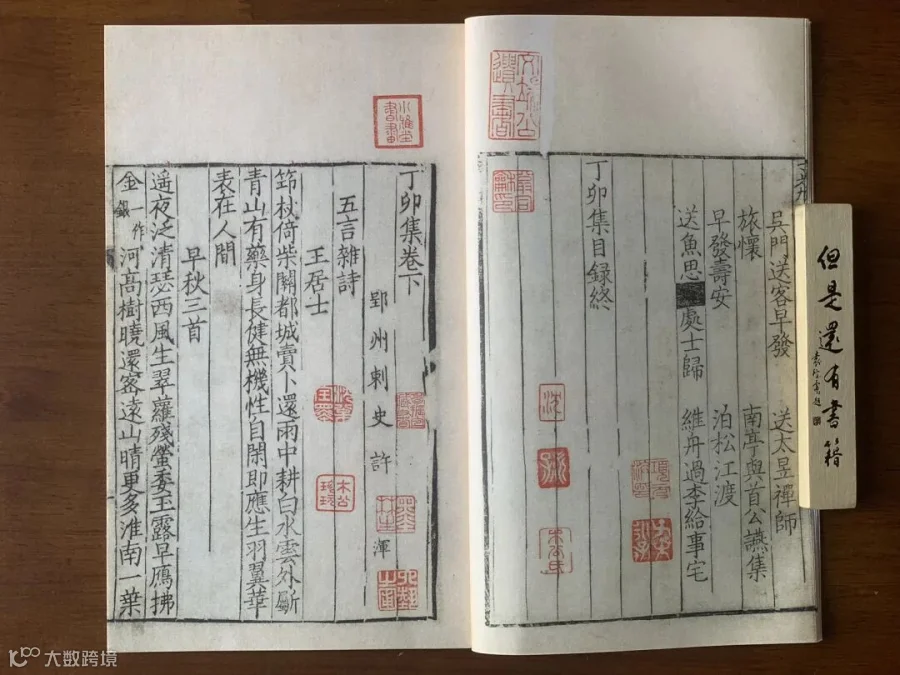 吳門送客早發　送太昱禪師
旅懷　南亭與首公讌集
早發壽安　泊松江渡
送魚思處士歸　維舟過李給事宅
丁卯集目録終
丁卯集卷下
郢州刺史許渾
五言雜詩
王居士
筇杖倚柴關都城賣卜還雨中耕白水雲外斸
青山有藥身長健無機性自閑即應生羽翼華
表在人間
早秋三首
遥夜泛清瑟西風生翠蘿殘螢委玉露早鴈拂
金一作銀河高樹曉還密遠山晴更多淮南一葉
但是還有書籍
大数跨境